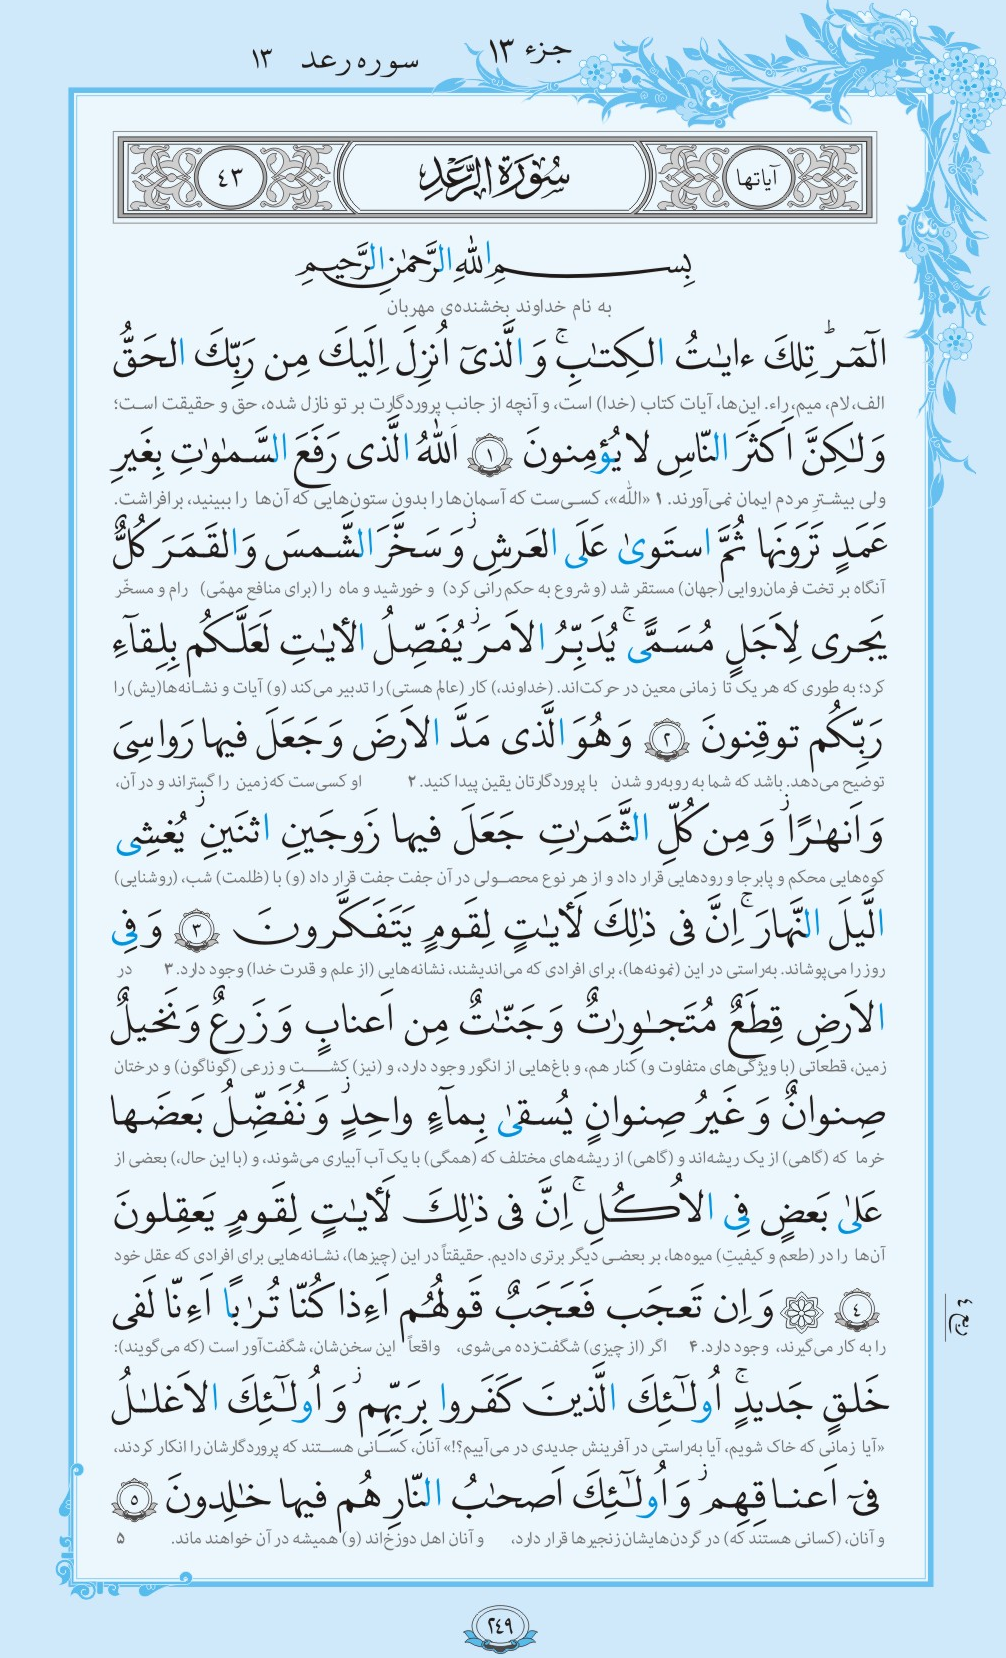 جزء ۱۳
سوره رعد ۱۳
آیاتها
سُورَةُ الرَّعْدِ
٤٣
بِسمِ اللّٰهِ الرَّحمٰنِ الرَّحیمِ
به نام خداوند بخشنده‌ی مهربان
الٓمٓرٰ ۚ تِلكَ ءایٰتُ الكِتٰبِ ۚ وَ الَّذیٓ اُنزِلَ اِلَیكَ مِن رَبِّكَ الحَقُّ
الف، لام، میم، راء. این‌ها، آیات کتاب (خدا) است، و آنچه از جانب پروردگارت بر تو نازل شده، حق و حقیقت است؛
وَلٰكِنَّ اَكثَرَ النّاسِ لا یُؤمِنونَ ١ اَللّٰهُ الَّذی رَفَعَ السَّمٰوٰتِ بِغَیرِ
ولی بیشترِ مردم ایمان نمی‌آورند. ۱ «اللّه»، کسی‌ست که آسمان‌ها را بدون ستون‌هایی که آن‌ها را ببینید، برافراشت.
عَمَدٍ تَرَونَها ثُمَّ استَویٰ عَلَی العَرشِ ۖ وَ سَخَّرَ الشَّمسَ وَ القَمَرَ كُلٌّ
آنگاه بر تخت فرمان‌روایی (جهان) مستقر شد (و شروع به حکم‌رانی کرد) و خورشید و ماه را (برای منافع مهمّی) رام و مسخّر
یَجری لِاَجَلٍ مُسَمًّی ۚ یُدَبِّرُ الاَمرَ یُفَصِّلُ الأیٰتِ لَعَلَّكُم بِلِقآءِ
کرد؛ به طوری که هر یک تا زمانی معین در حرکت‌اند. (خداوند،) کار (عالم هستی) را تدبیر می‌کند (و) آیات و نشانه‌ها(یش) را
رَبِّكُم توقِنونَ ٢ وَ هُوَ الَّذی مَدَّ الاَرضَ وَ جَعَلَ فیها رَواسِیَ
توضیح می‌دهد. باشد که شما به روبه‌رو شدن با پروردگارتان یقین پیدا کنید. ۲ او کسی‌ست که زمین را گستراند و در آن،
وَ اَنهٰرًا ۖ وَ مِن كُلِّ الثَّمَرٰتِ جَعَلَ فیها زَوجَینِ اثنَینِ ۖ یُغشِی
کوه‌هایی محکم و پابرجا و رودهایی قرار داد و از هر نوع محصولی در آن جفت جفت قرار داد (و) با (ظلمت) شب، (روشنایی)
الَّیلَ النَّهارَ ۚ اِنَّ فی ذٰلِكَ لَأیٰتٍ لِقَومٍ یَتَفَكَّرونَ ٣ وَ فِی
روز را می‌پوشاند. به‌راستی در این (نمونه‌ها)، برای افرادی که می‌اندیشند، نشانه‌هایی (از علم و قدرت خدا) وجود دارد. ۳ در
الاَرضِ قِطَعٌ مُتَجٰوِرٰتٌ وَ جَنّٰتٌ مِن اَعنابٍ وَ زَرعٌ وَ نَخیلٌ
زمین، قطعاتی (با ویژگی‌های متفاوت و) کنار هم، و باغ‌هایی از انگور وجود دارد، و (نیز) کشت و زرعی (گوناگون) و درختان
صِنوانٌ وَ غَیرُ صِنوانٍ یُسقیٰ بِمآءٍ واحِدٍ ۖ وَ نُفَضِّلُ بَعضَها
خرما که (گاهی) از یک ریشه‌اند و (گاهی) از ریشه‌های مختلف که (همگی) با یک آب آبیاری می‌شوند، و (با این حال،) بعضی از
عَلیٰ بَعضٍ فِی الاُكُلِ ۚ اِنَّ فی ذٰلِكَ لَأیٰتٍ لِقَومٍ یَعقِلونَ
آن‌ها را در (طعم و کیفیتِ) میوه‌ها، بر بعضی دیگر برتری دادیم. حقیقتاً در این (چیزها)، نشانه‌هایی برای افرادی که عقل خود
٤ وَ اِن تَعجَب فَعَجَبٌ قَولُهُم اَءِذا كُنّا تُرٰبًا اَءِنّا لَفی
ربع ٤
را به کار می‌گیرند، وجود دارد. ۴ اگر (از چیزی) شگفت‌زده می‌شوی، واقعاً این سخن‌شان، شگفت‌آور است (که می‌گویند):
خَلقٍ جَدیدٍ ۚ اُولٰٓئِكَ الَّذینَ كَفَروا بِرَبِّهِم ۖ وَ اُولٰٓئِكَ الاَغلٰلُ
«آیا زمانی که خاک شویم، آیا به‌راستی در آفرینش جدیدی در می‌آییم؟!» آنان، کسانی هستند که پروردگارشان را انکار کردند،
فیٓ اَعناقِهِم ۖ وَ اُولٰٓئِكَ اَصحٰبُ النّارِ هُم فیها خٰلِدونَ ٥
و آنان، (کسانی هستند که) در گردن‌هایشان زنجیرها قرار دارد، و آنان اهل دوزخ‌اند (و) همیشه در آن خواهند ماند. ۵
۲۴۹